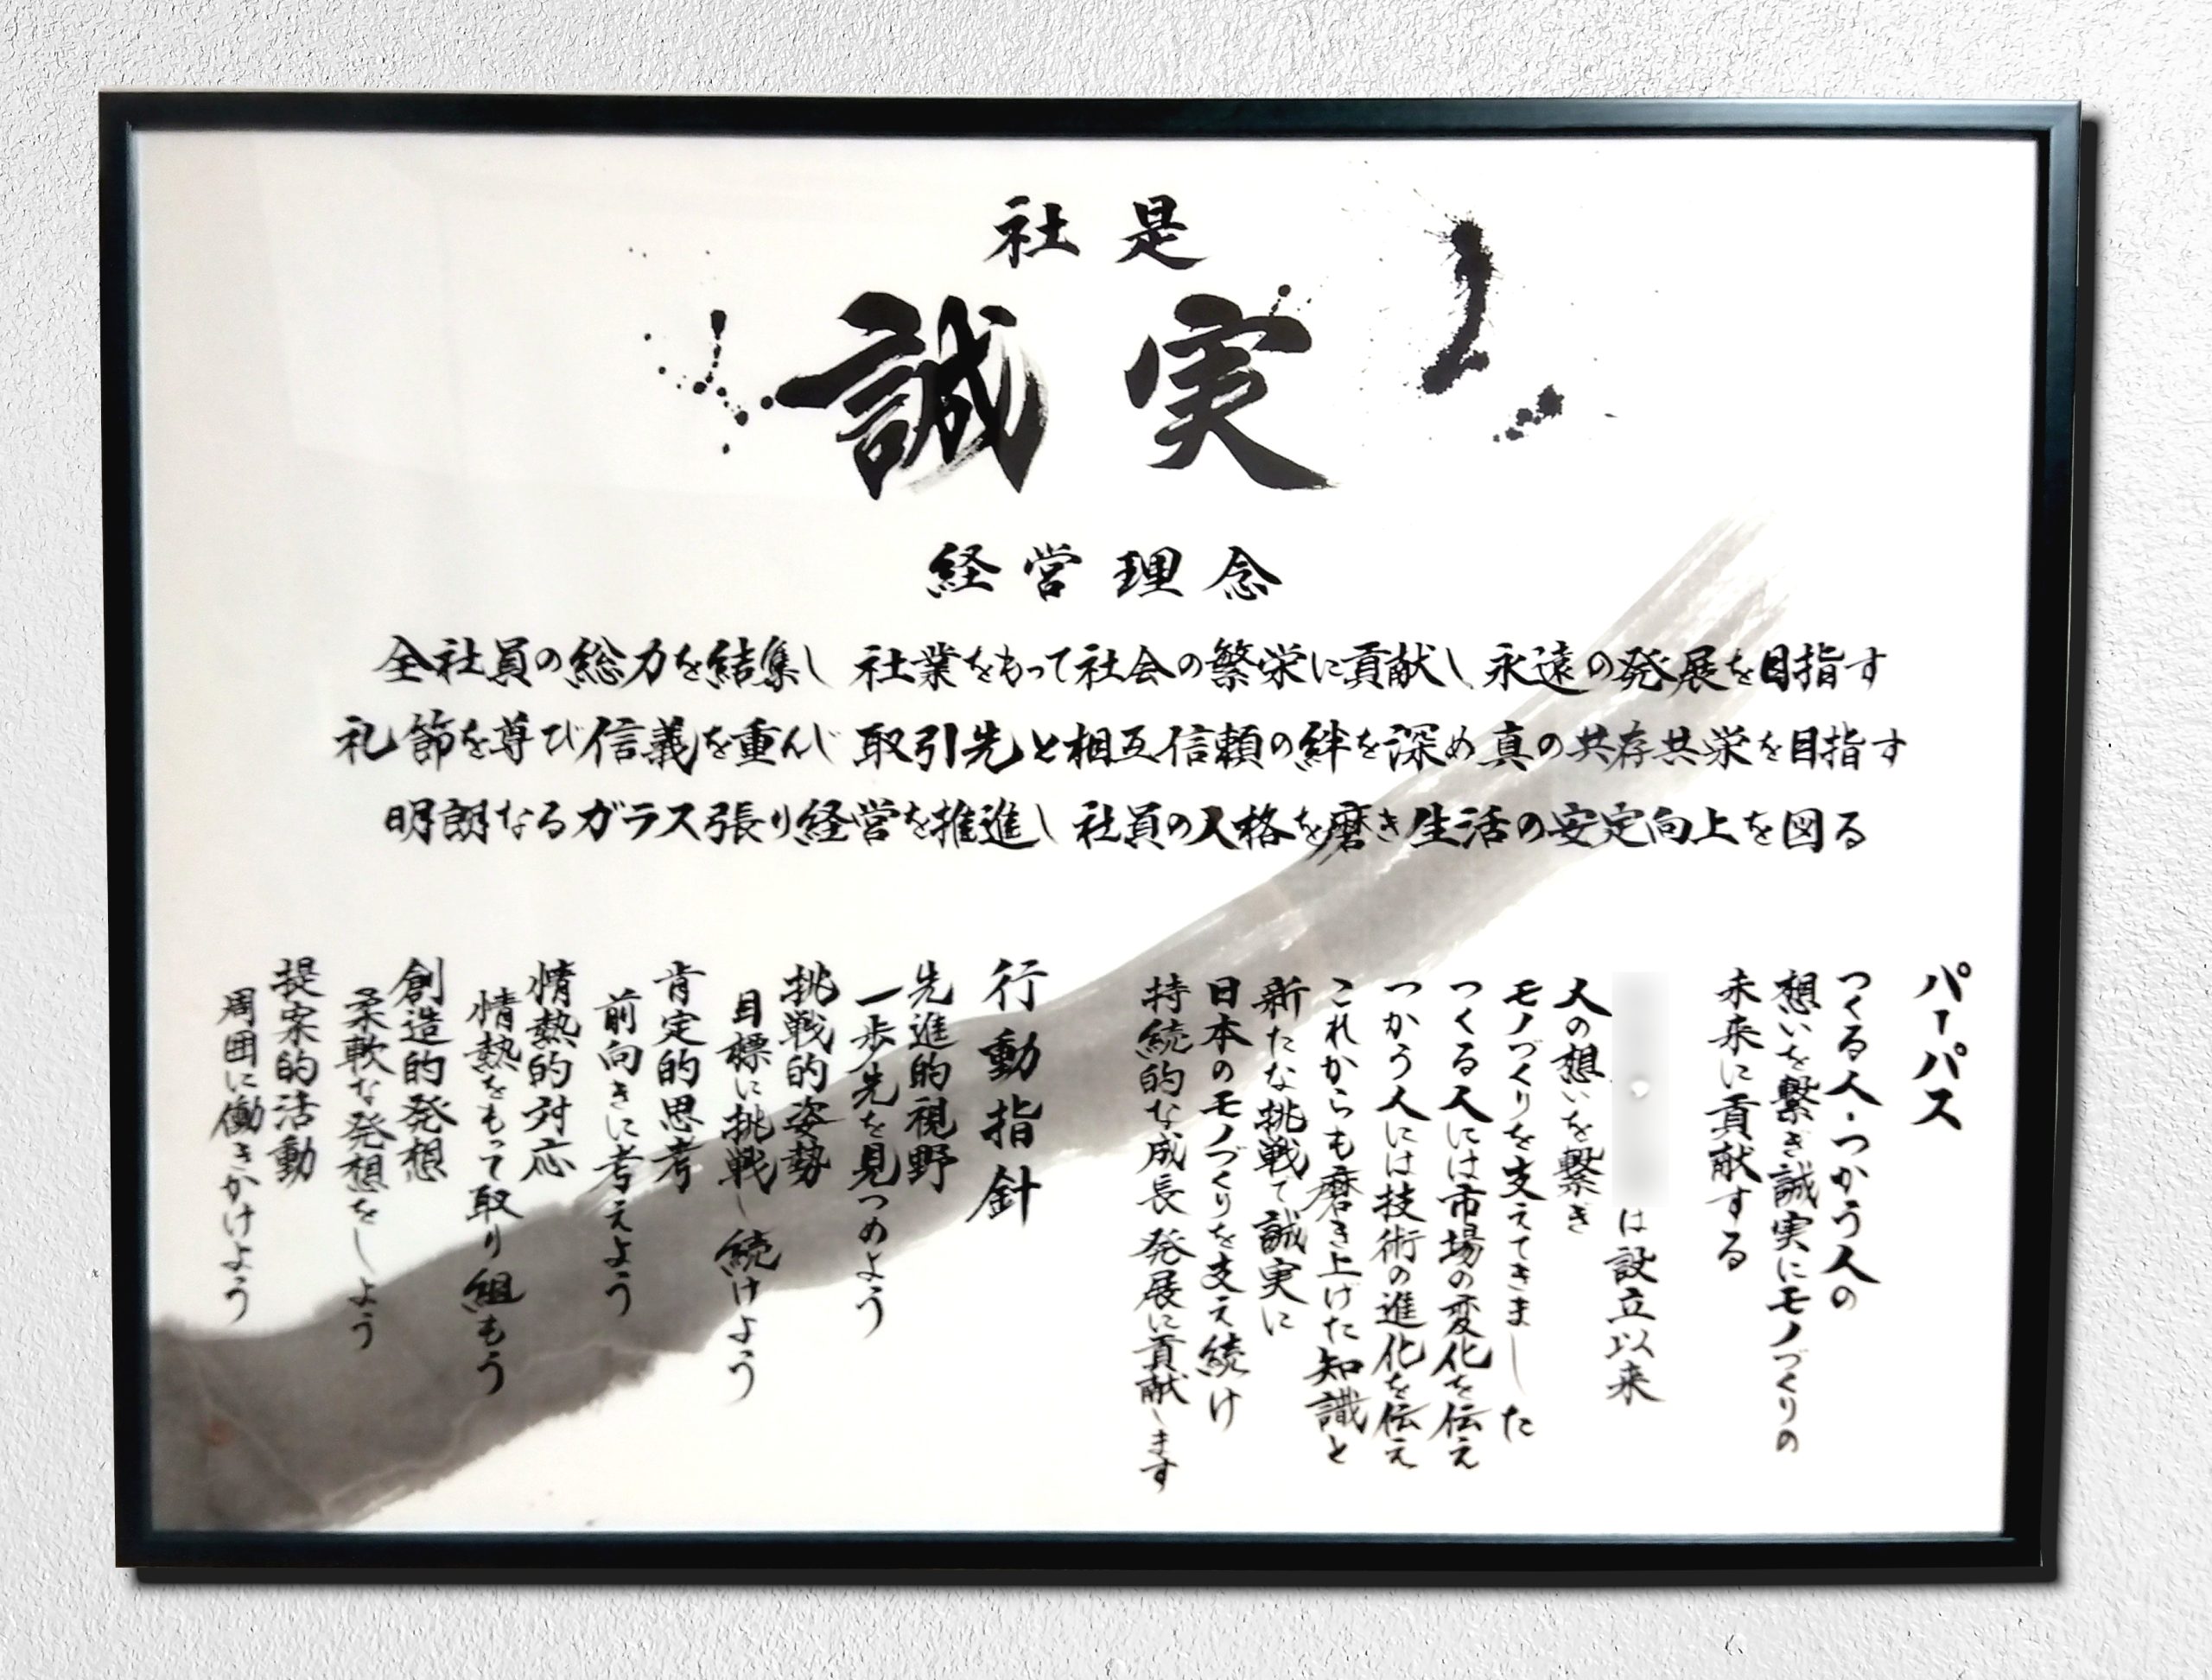 社是
誠実
経営理念
全社員の総力を結集し 社業をもって社会の繁栄に貢献し 永遠の発展を目指す
礼節を尊び信義を重んじ 取引先と相互信頼の絆を深め 真の共存共栄を目指す
明朗なるガラス張り経営を推進し 社員の人格を磨き生活の安定向上を図る
パーパス
つくる人・つかう人の
想いを繋ぎ誠実にモノづくりの
未来に貢献する
は設立以来
人の想いを繋ぎ
モノづくりを支えてきました
つくる人には市場の変化を伝え
つかう人には技術の進化を伝え
これからも磨き上げた知識と
新たな挑戦で誠実に
日本のモノづくりを支え続け
持続的な成長発展に貢献します
行動指針
先進的視野
一歩先を見つめよう
挑戦的姿勢
目標に挑戦し続けよう
肯定的思考
前向きに考えよう
情熱的対応
情熱をもって取り組もう
創造的発想
柔軟な発想をしよう
提案的活動
周囲に働きかけよう